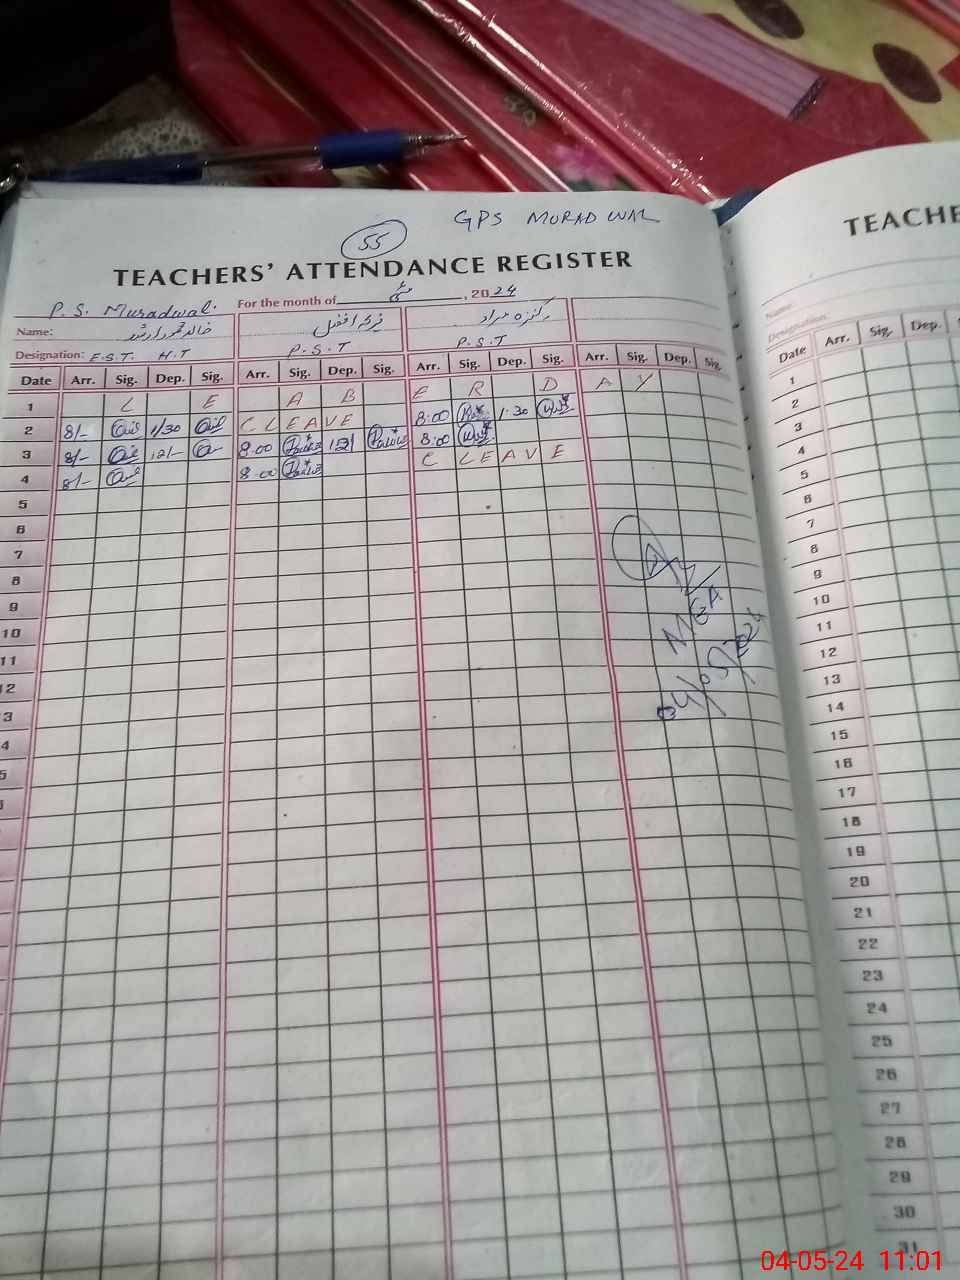 GPS MURADWAL
55
TEACHERS' ATTENDANCE REGISTER
P.S. Muradwal. For the month of مئی, 2024
Name: خالد محمود ارشد
Designation: E.S.T. H.T P.S.T P.S.T
Date Arr. Sig. Dep. Sig. Arr. Sig. Dep. Sig. Arr. Sig. Dep. Sig. Arr. Sig. Dep. Sig.
1 L E A B E R D A Y
2 8/- 1/30 C LEAVE 8:00 1:30
3 8/- 12/- 8:00 12/ 8:00
4 8/- 8:00 C LEAVE
5
6
7
8
9
10
11
12
3
4
5
MEA
04/05/2024
TEACHE
Name:
Designation:
Date Arr. Sig. Dep.
1
2
3
4
5
6
7
8
9
10
11
12
13
14
15
16
17
18
19
20
21
22
23
24
25
26
27
28
29
30
31
04-05-24 11:01